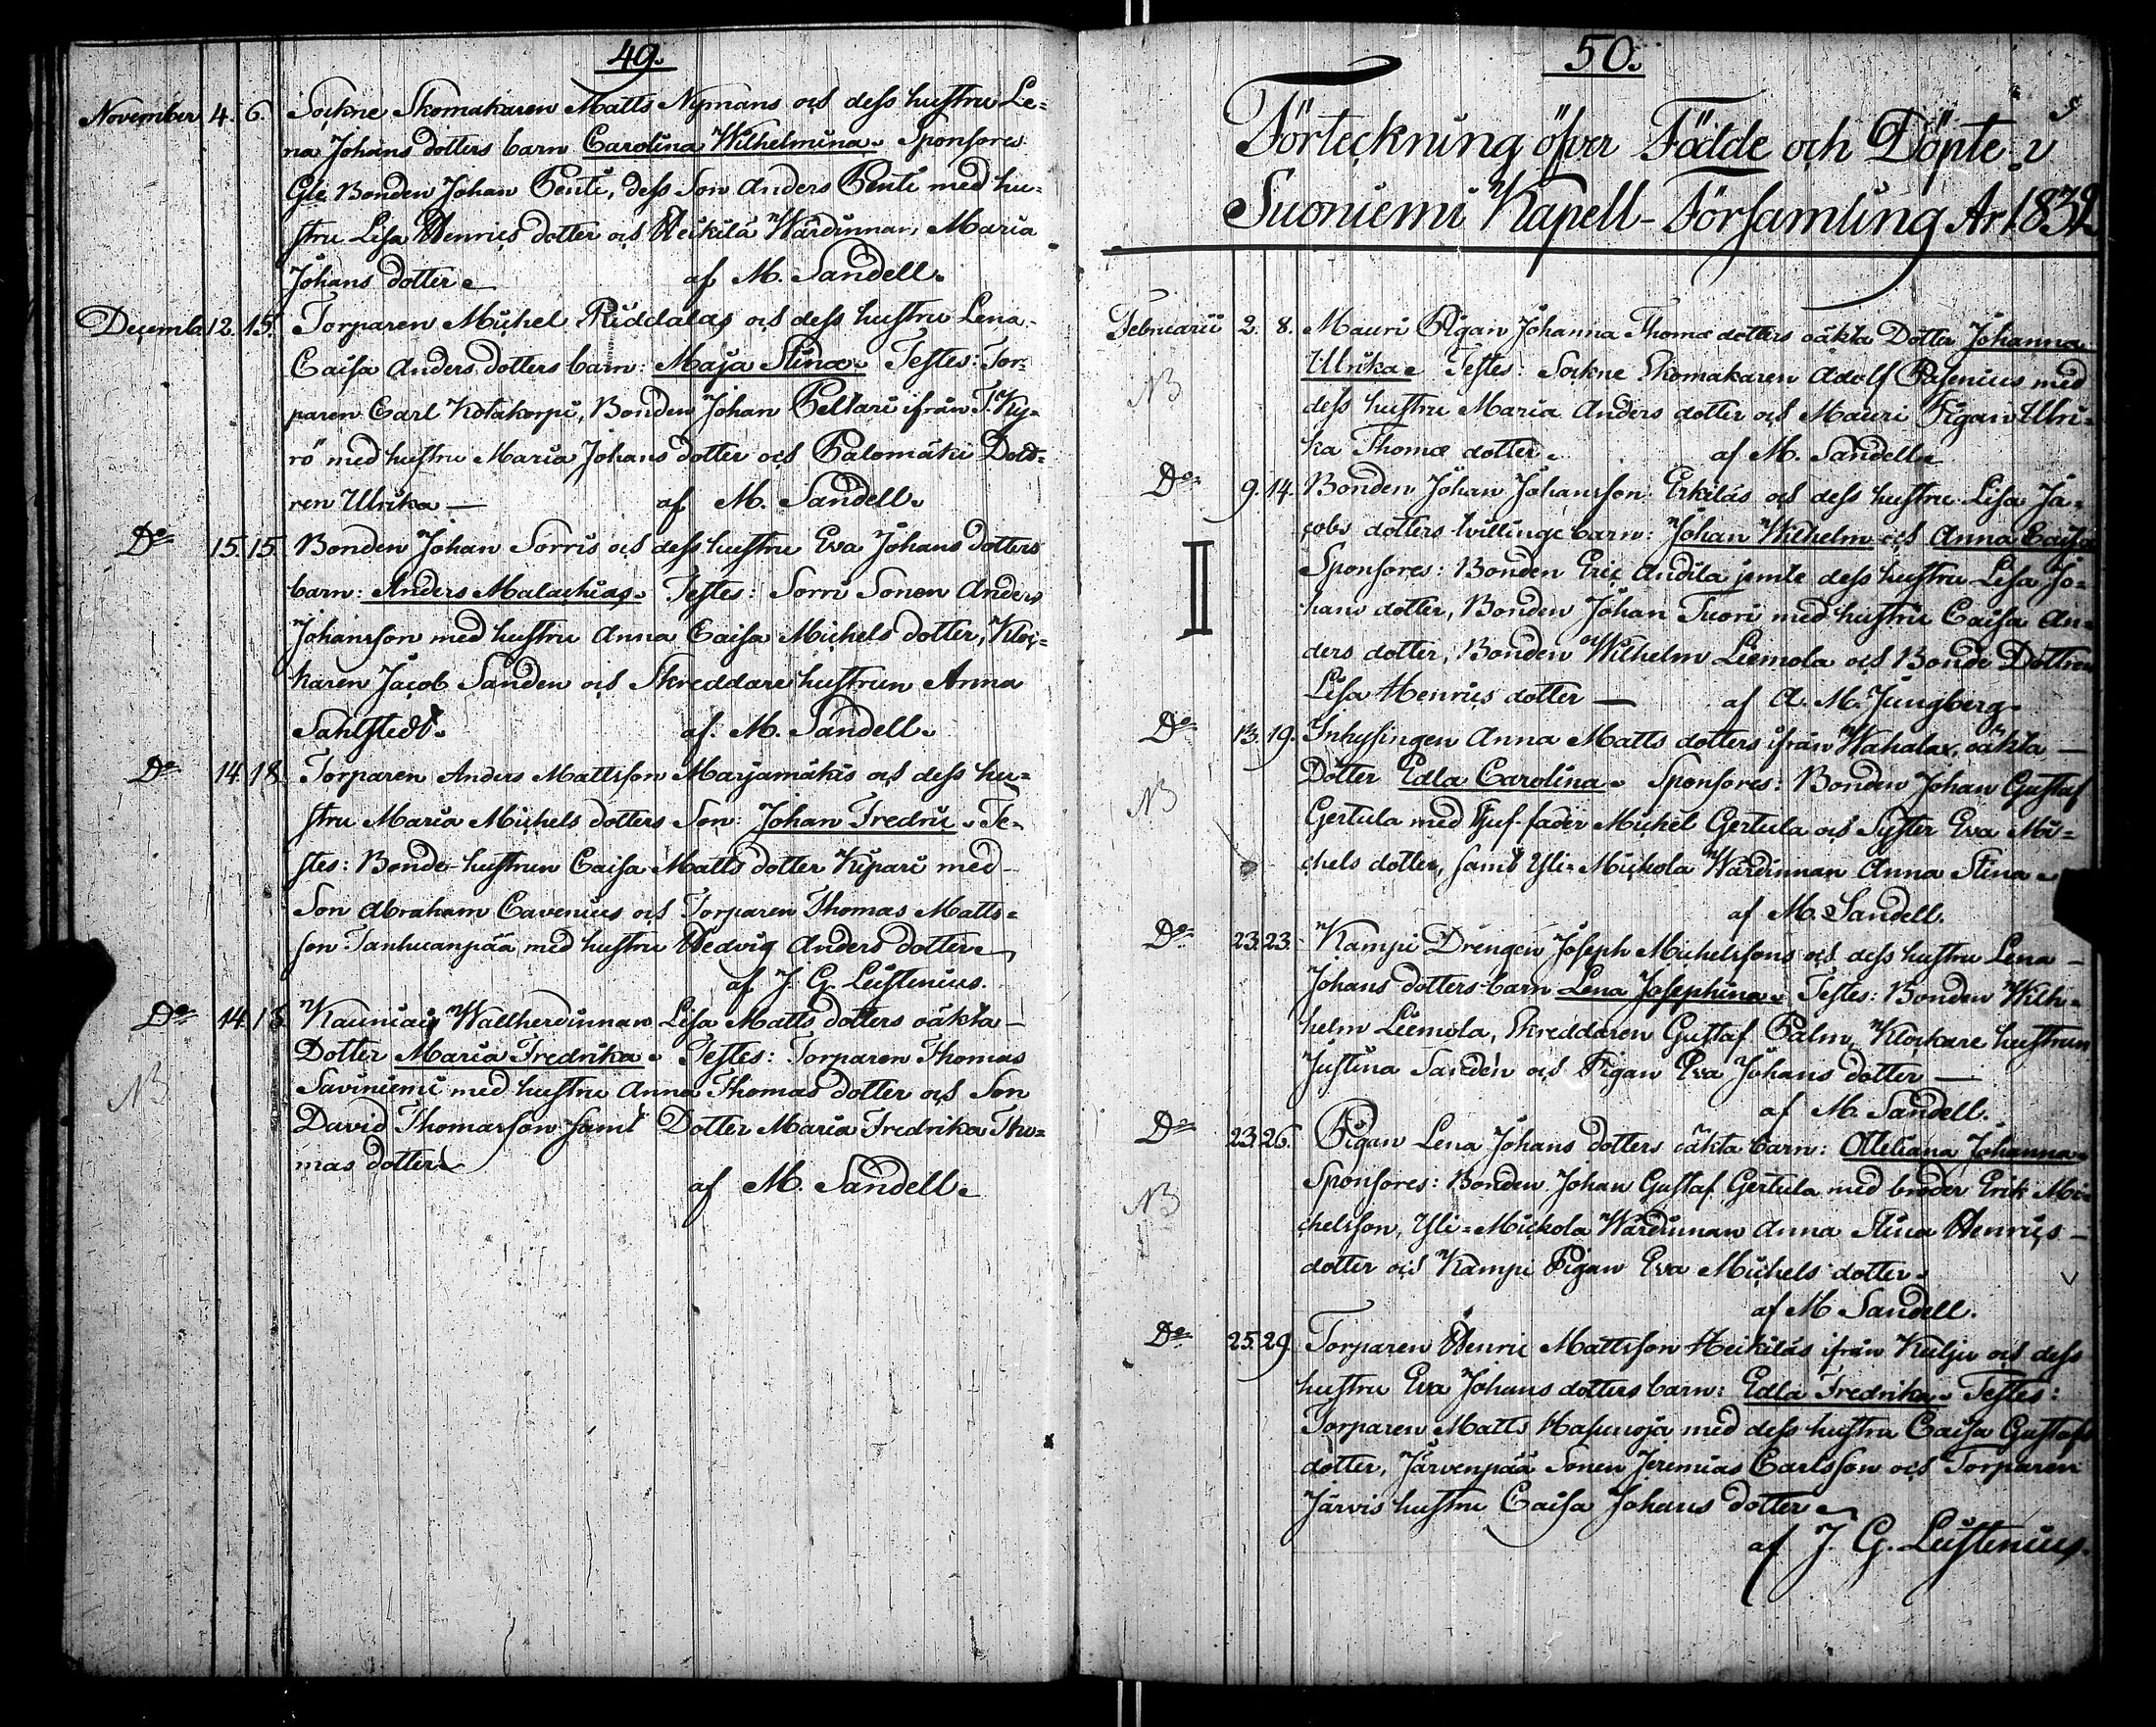 49.
November 4. 6. Sockne Skomakaren Matts Nymans och dess hustru Le=
na Johans dotters barn Carolina Wilhelmina. Sponsores
Gle Bonden Johan Penti, dess Son Anders Penti med hu=
stru Lisa Henrics dotter och Heikilä Wärdinnan, Maria
Johans dotter af M. Sandell.
Decemb. 12. 15. Torparen Michel Riddalas och dess hustru Lena
Caisa Anders dotters barn: Maja Stina. Testes: Tor=
paren Carl Kotakorpi, Bonden Johan Peltari ifrån T. Ky=
rö med hustru Maria Johans dotter och Palomäki Dott=
ren Ulrika — af M. Sandell.
Do 15. 15. Bonden Johan Sorris och dess hustru Eva Johans dotters
barn: Anders Malachias. Testes: Sorri Sonen Anders
Johansson med hustru Anna Caisa Michels dotter, Kloc=
karen Jacob Sanden och Skreddare hustrun Anna
Sahlstedt. af. M. Sandell.
Do 14. 18. Torparen Anders Mattsson Marjamäkis och dess hu=
stru Maria Michels dotters Son: Johan Fredric. Te=
stes: Bonde-hustrun Caisa Matts dotter Kipari med
Son Abraham Cavenius och Torparen Thomas Matts=
son Tanhuanpää med hustru Hedvig Anders dotter
af J. G. Leistenius.
Do 14. 18. Kauniais Wallherdinnan Lisa Matts dotters oäkta
Dotter Maria Fredrika. Testes: Torparen Thomas
NB Saviniemi med hustru Anna Thomas dotter och Son
David Thomasson samt Dotter Maria Fredrika Tho=
mas dotter
af M. Sandell.
50.
Förteckning öfver Födde och Döpte i
Suoniemi Kapell-Församling År 1832.
Februarii 2. 8. Mauri Pigan Johanna Thomæ dotters oäkta Dotter Johanna
Ulrika. Testes: Sockne Skomakaren Adolf Pasenius med
NB dess hustru Maria Anders dotter och Mauri Pigan Ulri=
ka Thomæ dotter. af M. Sandell.
Do 9. 14. Bonden Johan Johansson Erkiläs och dess hustru Lisa Ja=
cobs dotters tvillinge barn: Johan Wilhelm och Anna Caisa
II Sponsores: Bonden Eric Andila jemte dess hustru Lisa Jo=
hans dotter, Bonden Johan Tuori med hustru Caisa An=
ders dotter, Bonden Wilhelm Liemola och Bonde Dottren
Lisa Henrics dotter — af A. M. Jungberg
Do 13. 19. Inhysingen Anna Matts dotters ifrån Wahalax, oäkta —
Dotter Edla Carolina. Sponsores: Bonden Johan Gustaf
NB Gertula med Stjuf-fader Michel Gertula och Syster Eva Mi=
chels dotter, samt Yli=Mickola Wärdinnan Anna Stina
af M. Sandell.
Do 23. 23. Kampi Drengen Joseph Michelssons och dess hustru Lena —
Johans dotters barn Lena Josephina. Testes: Bonden Wilh=
helm Liemola, Skreddaren Gustaf Palm, Klockare hustrun
Justina Sandén och Pigan Eva Johans dotter —
af M. Sandell.
Do 23. 26. Pigan Lena Johans dotters oäkta barn: Otteliana Johanna
Sponsores: Bonden Johan Gustaf Gertula med broder Erik Mi=
NB chelsson, Yli=Mickola Wärdinnan Anna Stina Henrics —
dotter och Kampi Pigan Eva Michels dotter.
af M Sandell.
Do 25. 29. Torparen Henric Mattsson Heikiläs ifrån Kulju och dess
hustru Eva Johans dotters barn: Edla Fredrika. Testes:
Torparen Matts Hasunoja med dess hustru Caisa Gustafs
dotter, Järvenpää Sonen Jeremias Carlsson och Torparen
Järvis hustru Caisa Johans dotter
af J. G. Leistenius.